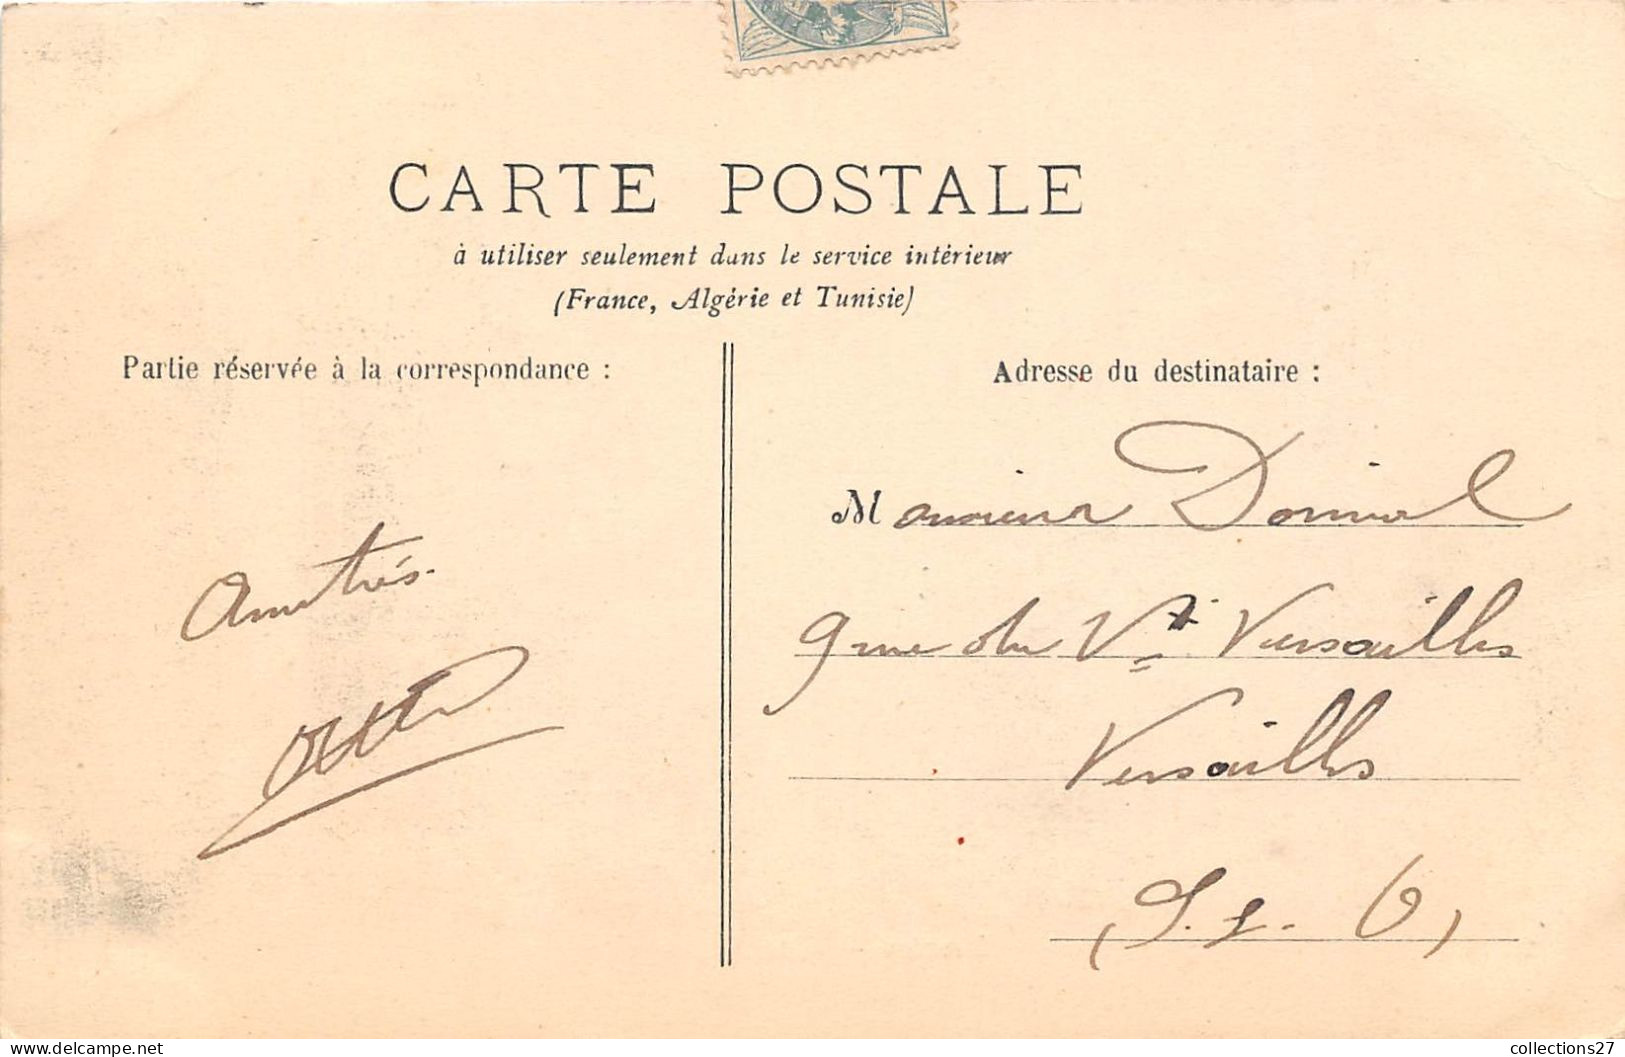 CARTE POSTALE
à utiliser seulement dans le service intérieur
(France, Algérie et Tunisie)
Partie réservée à la correspondance :
Amitiés.
Adresse du destinataire :
Monsieur
9 rue du Vx Versailles
Versailles
(S. & . O)
collections27